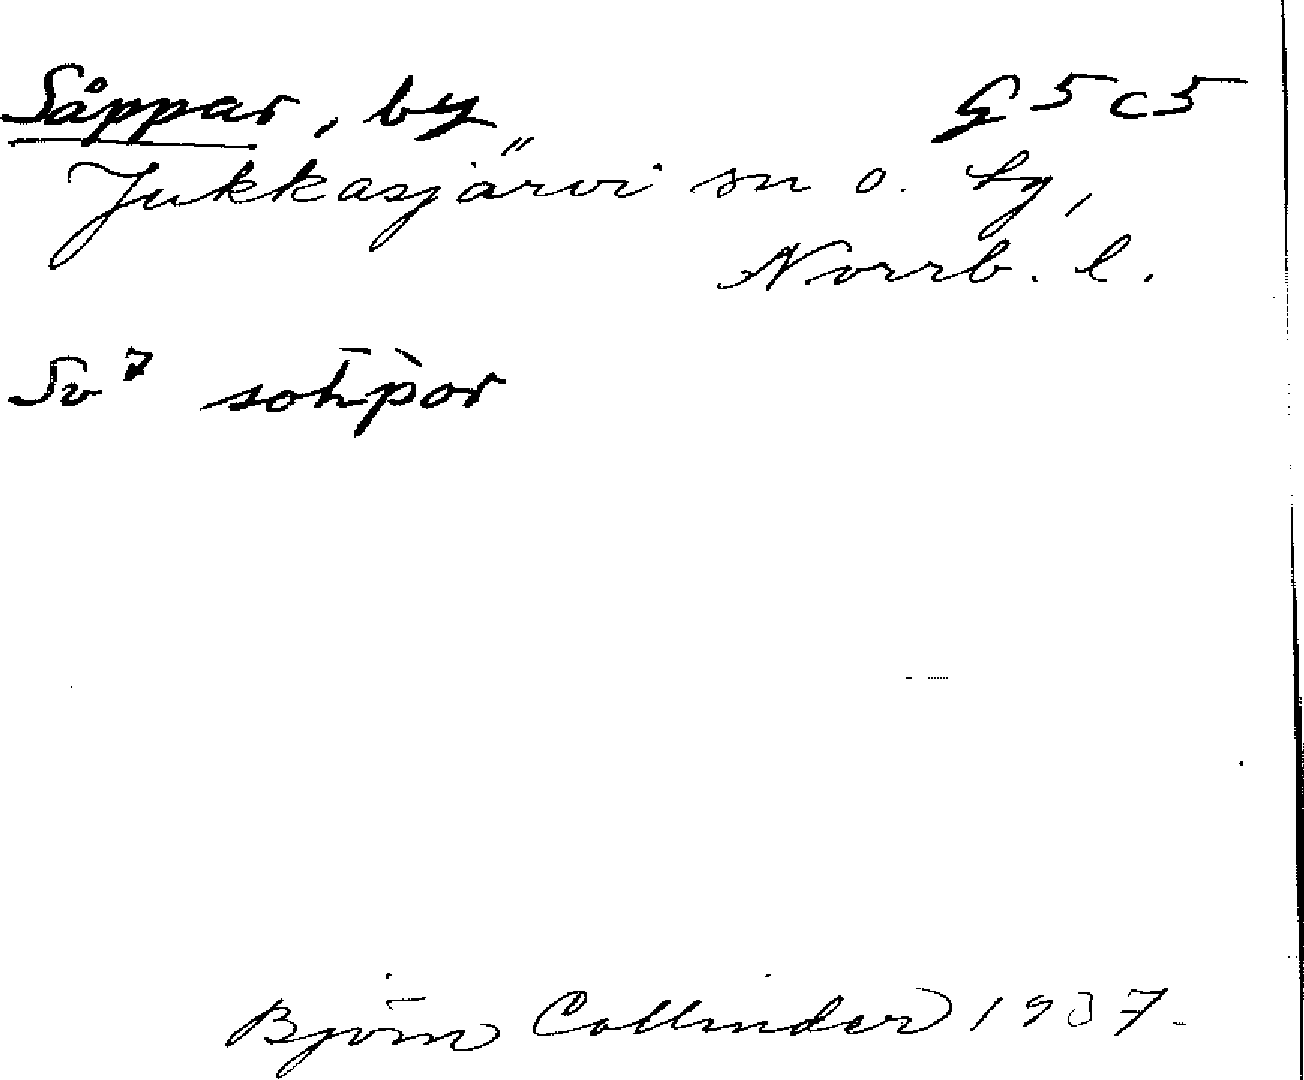 Såppar, by G5c5
Jukkasjärvi sn o. tg,
Norrb. l.
Sv
Björn Collinder 1937.